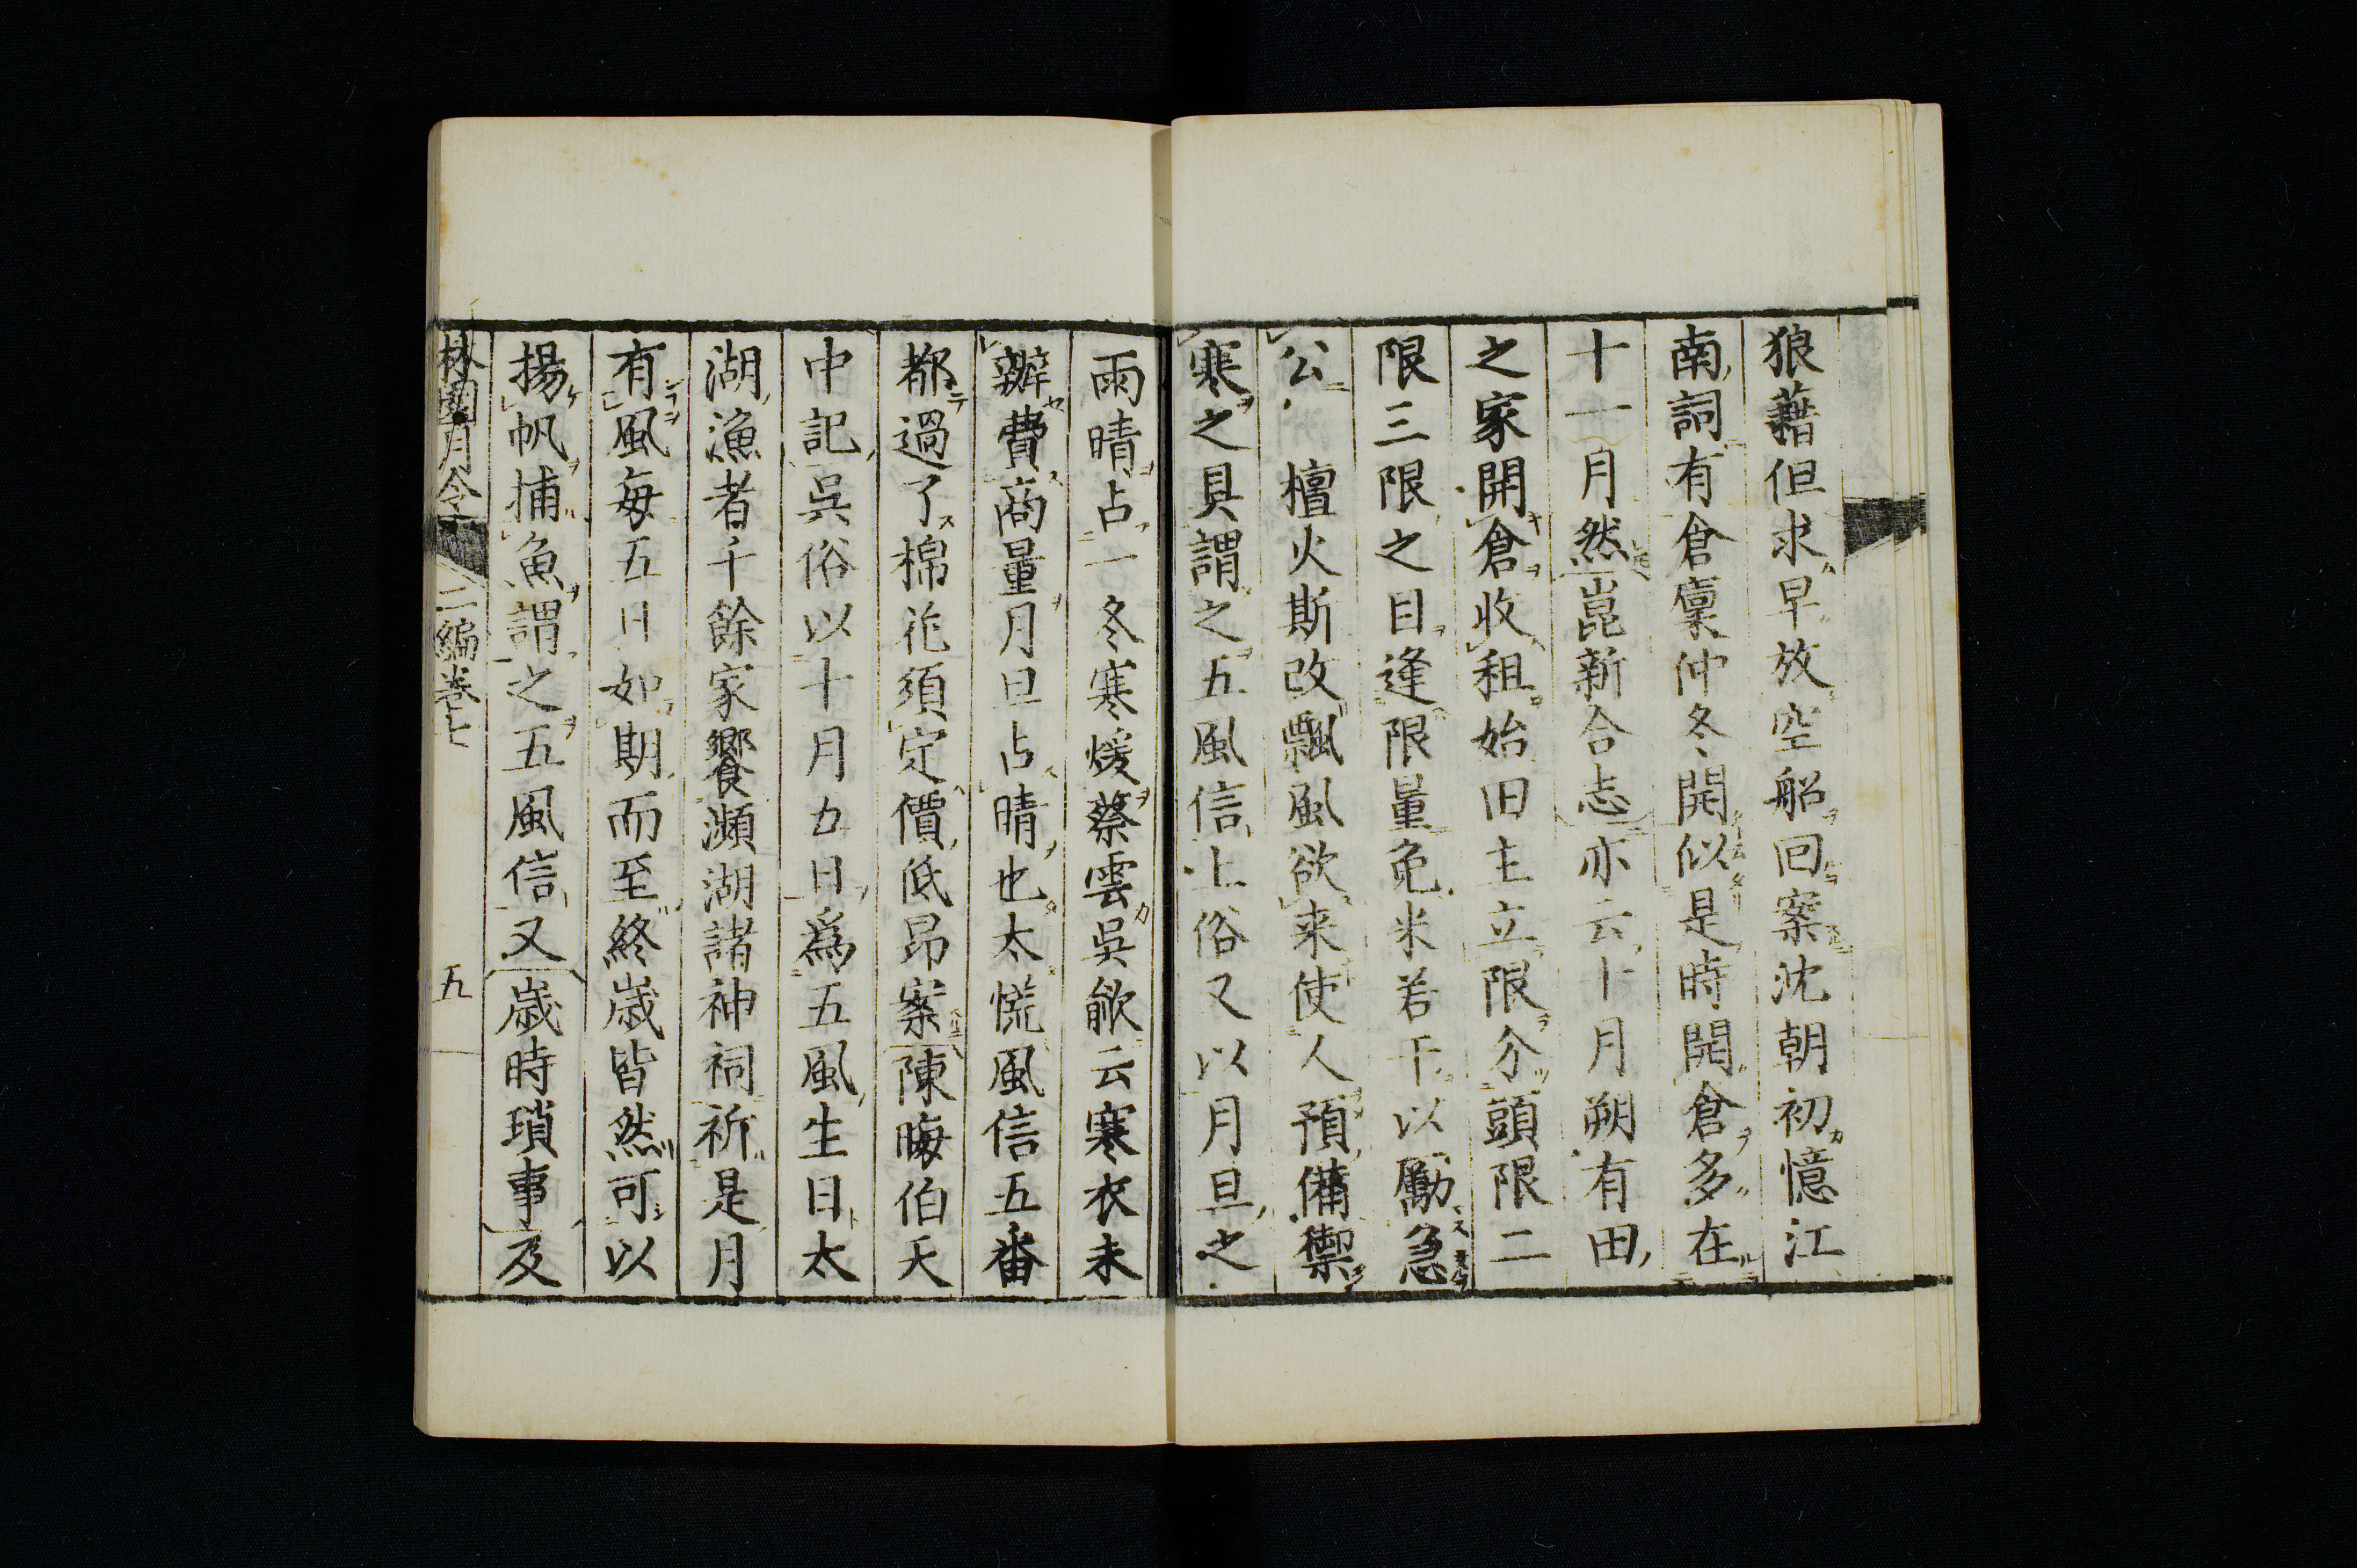 狼藉但求早放空船回案沈朝初憶江
南詞有倉稟仲冬開似是時開倉多在
十一月然崑新合志亦云十月朔有田
之家開倉收租始旧主立限分頭限二
限三限之目逢限量免米若干以勵急
公　檀火斯改飄風欲来使人預備禦
寒之具謂之五風信上俗又以月旦之
雨晴占一冬寒煖蔡雲吳歈云寒衣未
辦費商量月旦占晴也太慌風信五番
都過了棉花須定價低昂案陳晦伯天
中記吳俗以十月五日爲五風生日太
湖漁者千餘家饗瀕湖諸神祠祈是月
有風每五日如期而至終歳皆然可以
揚帆捕魚謂之五風信又歳時瑣事及
林園月令　二編卷七　五